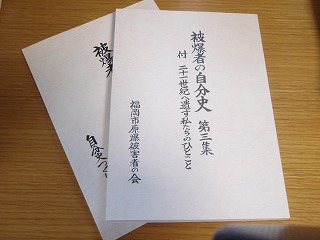 被爆者の自分史 第三集
付 二十一世紀へ遺す私たちのひとこと
福岡市原爆被害者の会
被爆者
自分